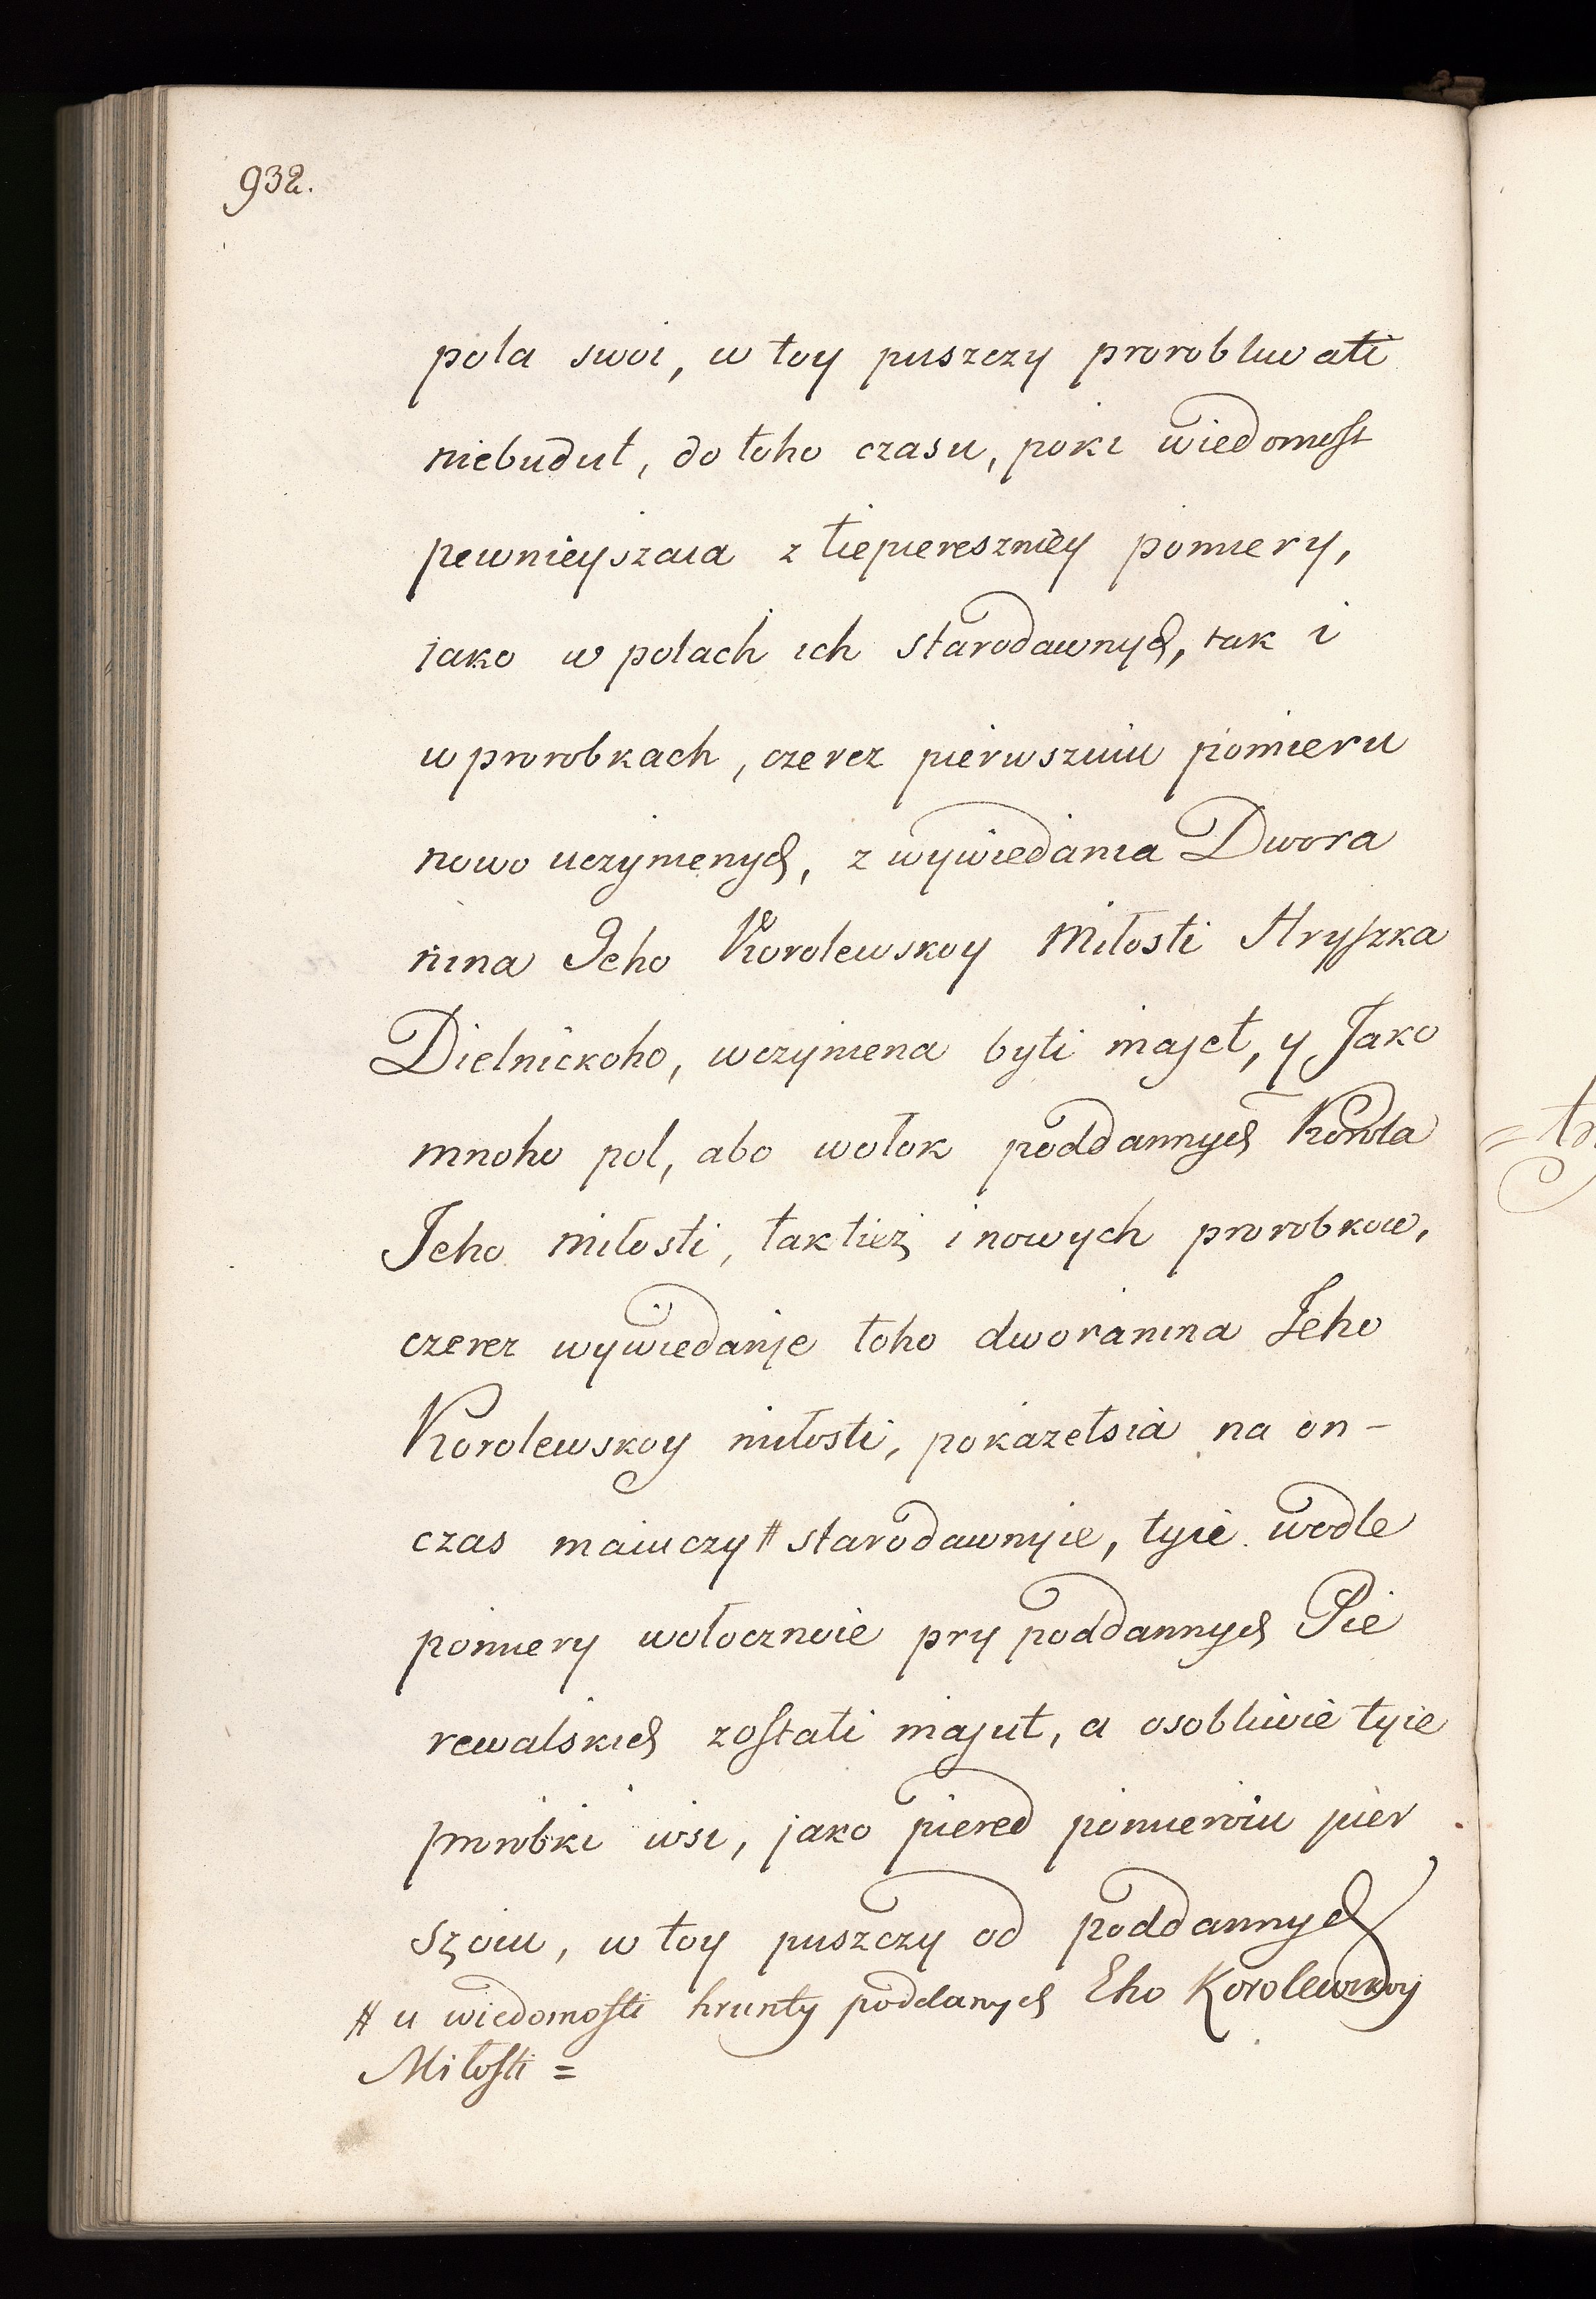 932.
pola swoi, w toy puszczy prorobliwati
niebudut, do toho czasu, poki wiedomost
pewnieyszaia z tiepiereszniey pomiery,
iako w polach ich starodawnych, tak i
w prorobkach, czerez pierwszuiu pomieru
nowo uczynienych, z wywiedania Dwora
nina Jeho Korolewskoy Miłosti Hryszka
Dielnickoho, wczyniena byti majet, y Jako
mnoho pol, abo wołok poddannych Korola
Jeho miłosti, taktież i nowych prorobkow,
czerez wywiedanje toho dworanina Jeho
Korolewskoy miłosti, pokażetsia na on-
czas maiuczy # starodawnyie, tyie wodle
pomiery wołocznoie pry poddannych Pie
rewalskich zostati majut, a osobliwie tyie
prorobki wsi, jako piered pomieroiu pier
szoiu, w toy puszczy od poddannych
# u wiedomosti hrunty poddanych Eho Korolewskoy
Miłosti =